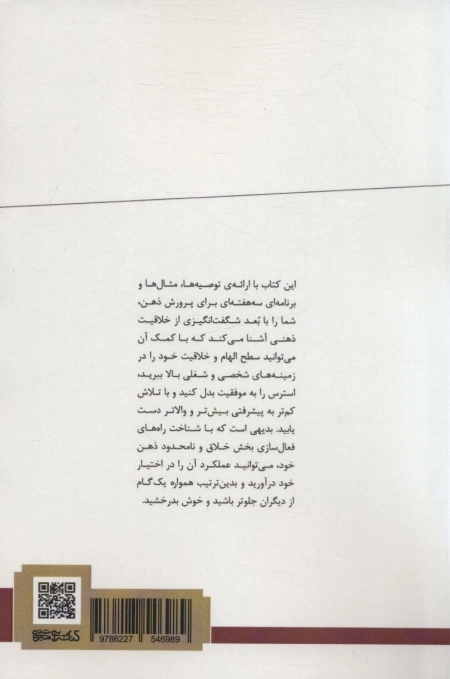 این کتاب با ارائه‌ی توصیه‌ها، مثال‌ها و
برنامه‌ای سه‌هفته‌ای برای پرورش ذهن،
شما را با بُعد شگفت‌انگیزی از خلاقیت
ذهنی آشنا می‌کند که با کمک آن
می‌توانید سطح الهام و خلاقیت خود را در
زمینه‌های شخصی و شغلی بالا ببرید،
استرس را به موفقیت بدل کنید و با تلاش
کم‌تر به پیشرفتی بیش‌تر و والاتر دست
یابید. بدیهی است که با شناخت راه‌های
فعال‌سازی بخش خلاق و نامحدود ذهن
خود، می‌توانید عملکرد آن را در اختیار
خود درآورید و بدین‌ترتیب همواره یک‌گام
از دیگران جلوتر باشید و خوش بدرخشید.
9786227 546989